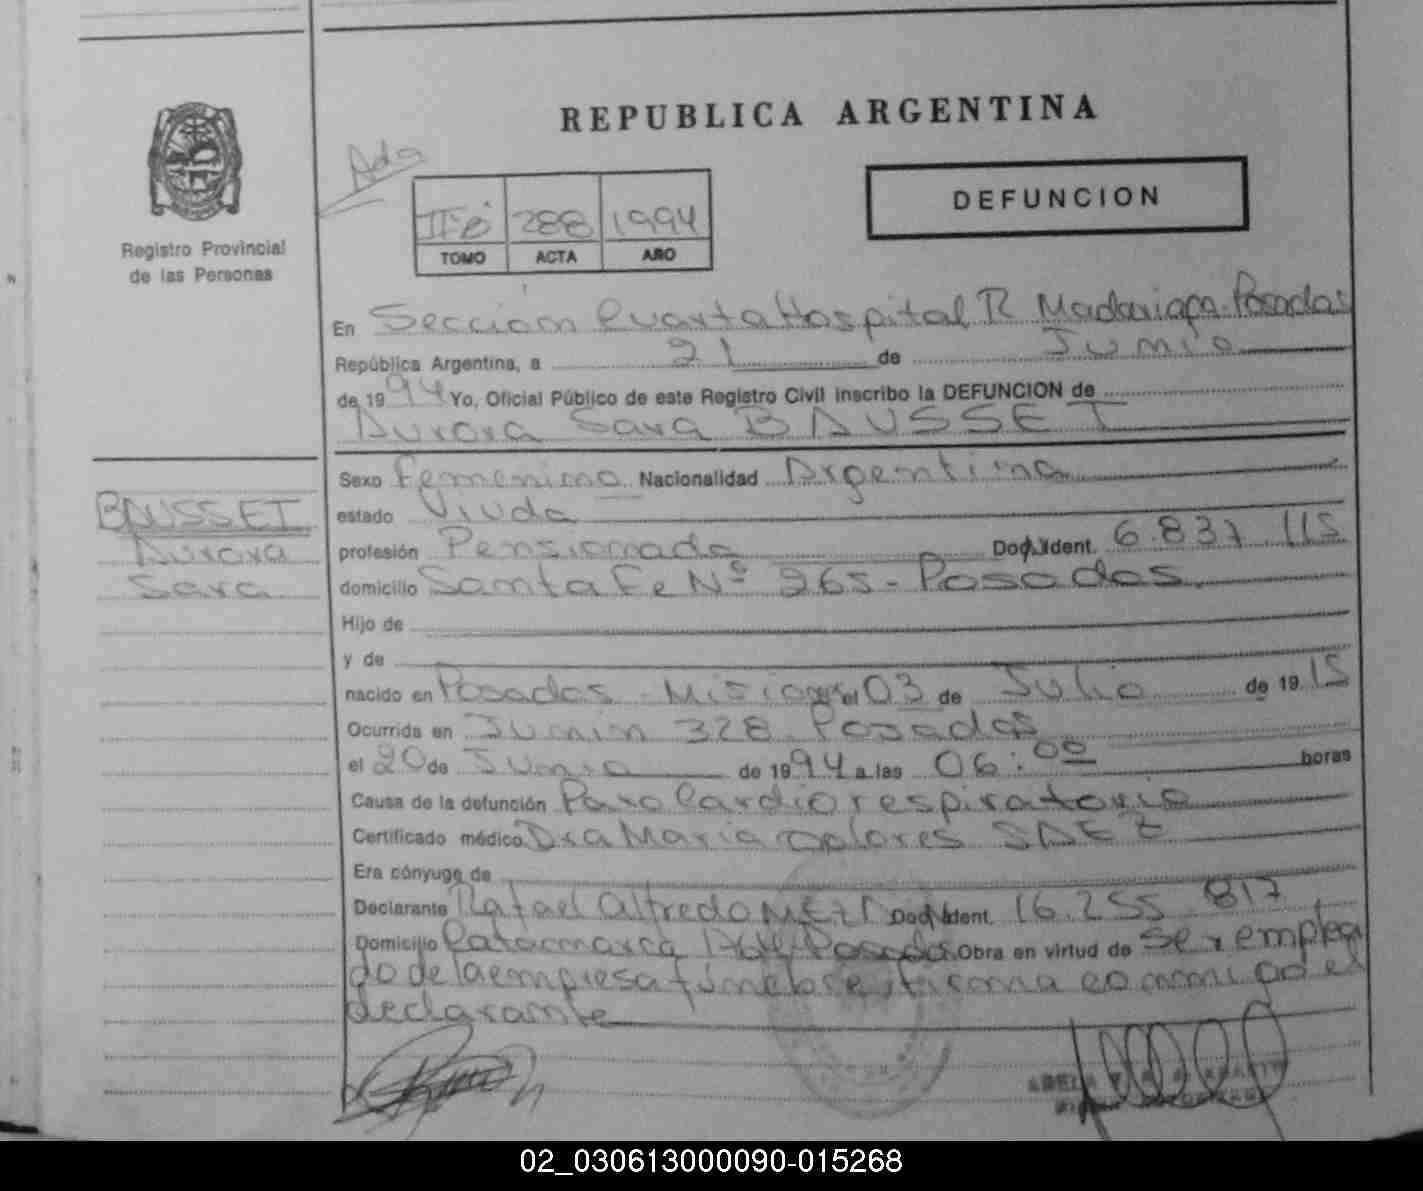 REPUBLICA ARGENTINA
Ada
DEFUNCION
288 1994
TOMO ACTA AÑO
Registro Provincial
de las Personas
En Sección Cuarta Hospital R Madariaga-Posadas
República Argentina, a 21 de Junio
de 1994 Yo, Oficial Público de este Registro Civil inscribo la DEFUNCION de
Aurora Sara BAUSSET
Sexo Femenino Nacionalidad Argentina
estado Viuda
profesión Pensionada Doc. Ident. 6.837.115
domicilio Santa Fe Nº 265-Posadas
Hijo de
y de
nacido en Posadas - Misiones el 03 de Julio de 1915
Ocurrida en Junin 328 Posadas
el 20 de Junio de 1994 a las 06:00 horas
Causa de la defunción Paro Cardiorespiratorio
Certificado médico Dra Maria Dolores SAEZ
Era cónyuge de
Declarante Rafael Alfredo Doc. Ident. 16.255.817
Domicilio Catamarca Posadas Obra en virtud de Ser emplea
do de la empresa fúnebre, firma conmigo el
declarante
BAUSSET
Aurora
Sara
02_030613000090-015268